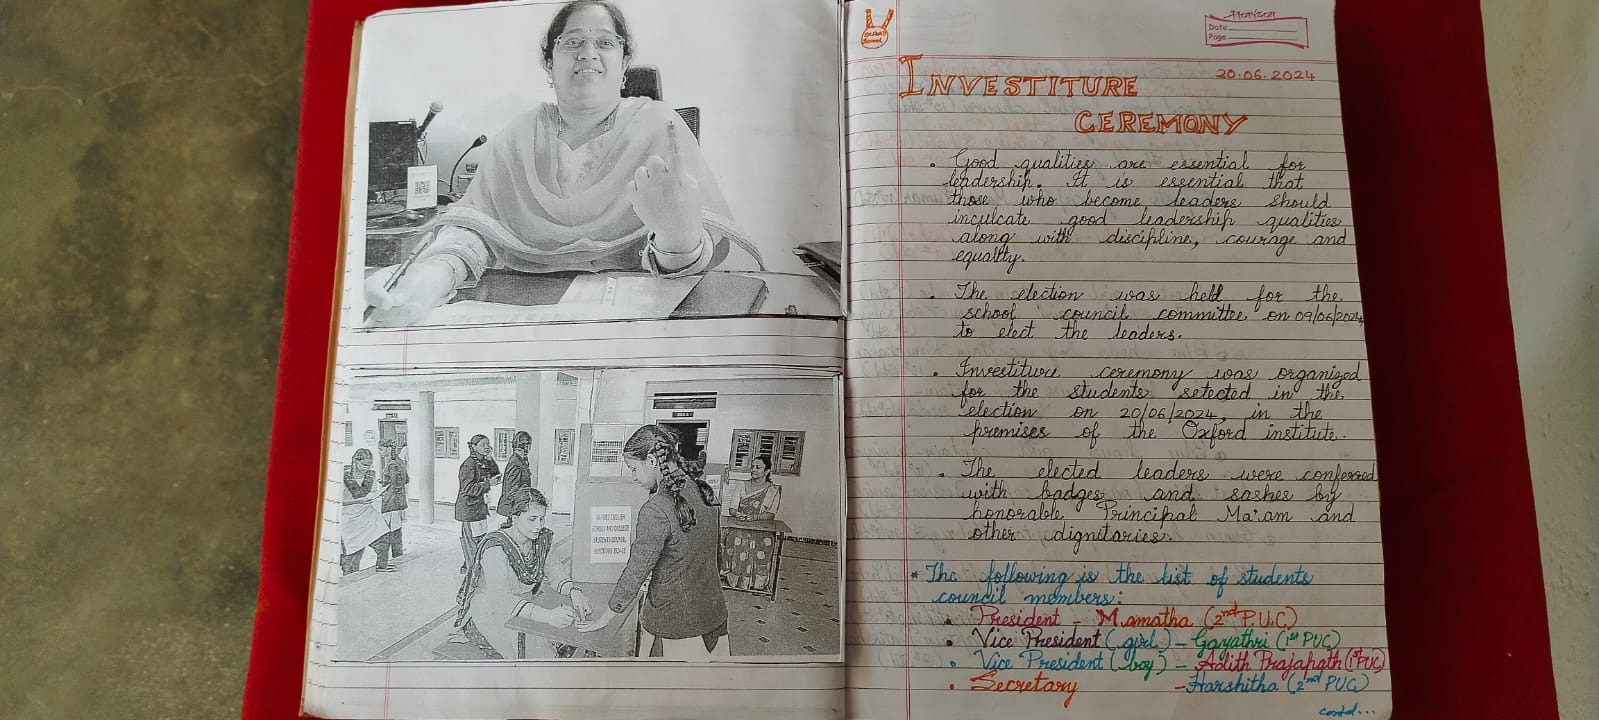 OXFORD ENGLISH
SCHOOL AND COLLEGE
STUDENTS COUNCIL
ELECTIONS 2024-25
Horizon
Date
Page
INVESTITURE
20.06.2024
CEREMONY
• Good qualities are essential for
leadership. It is essential that
those who become leaders should
inculcate good leadership qualities
along with discipline, courage and
equality.
• The election was held for the
school council committee on 09/06/2024,
to elect the leaders.
• Investiture ceremony was organized
for the students selected in the
election on 20/06/2024, in the
premises of the Oxford institute.
• The elected leaders were conferred
with badges and sashes by
honorable Principal Ma'am and
other dignitaries.
* The following is the list of students
council members:
• President - Mamatha (2nd P.U.C)
• Vice President (girl) - Gayathri (1st PUC)
• Vice President (boy) - Adith Prajapath (1st PUC)
• Secretary - Harshitha (2nd PUC)
contd...